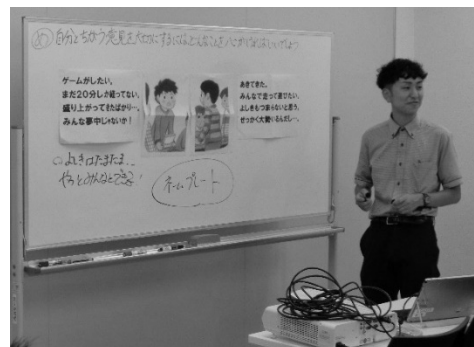 め 自分とちがう意見を大切にするにはどんなことを心がければよいでしょう
ゲームがしたい。
まだ20分しか経ってない。
盛り上がってきたばかり…。
みんな夢中じゃないか！
あきてきた。
みんなで走って遊びたい。
よしきもつまらないと思う。
せっかく大勢いるんだし…。
○よしきはたまたま…
やっとみんなとできる！
ネームプレート